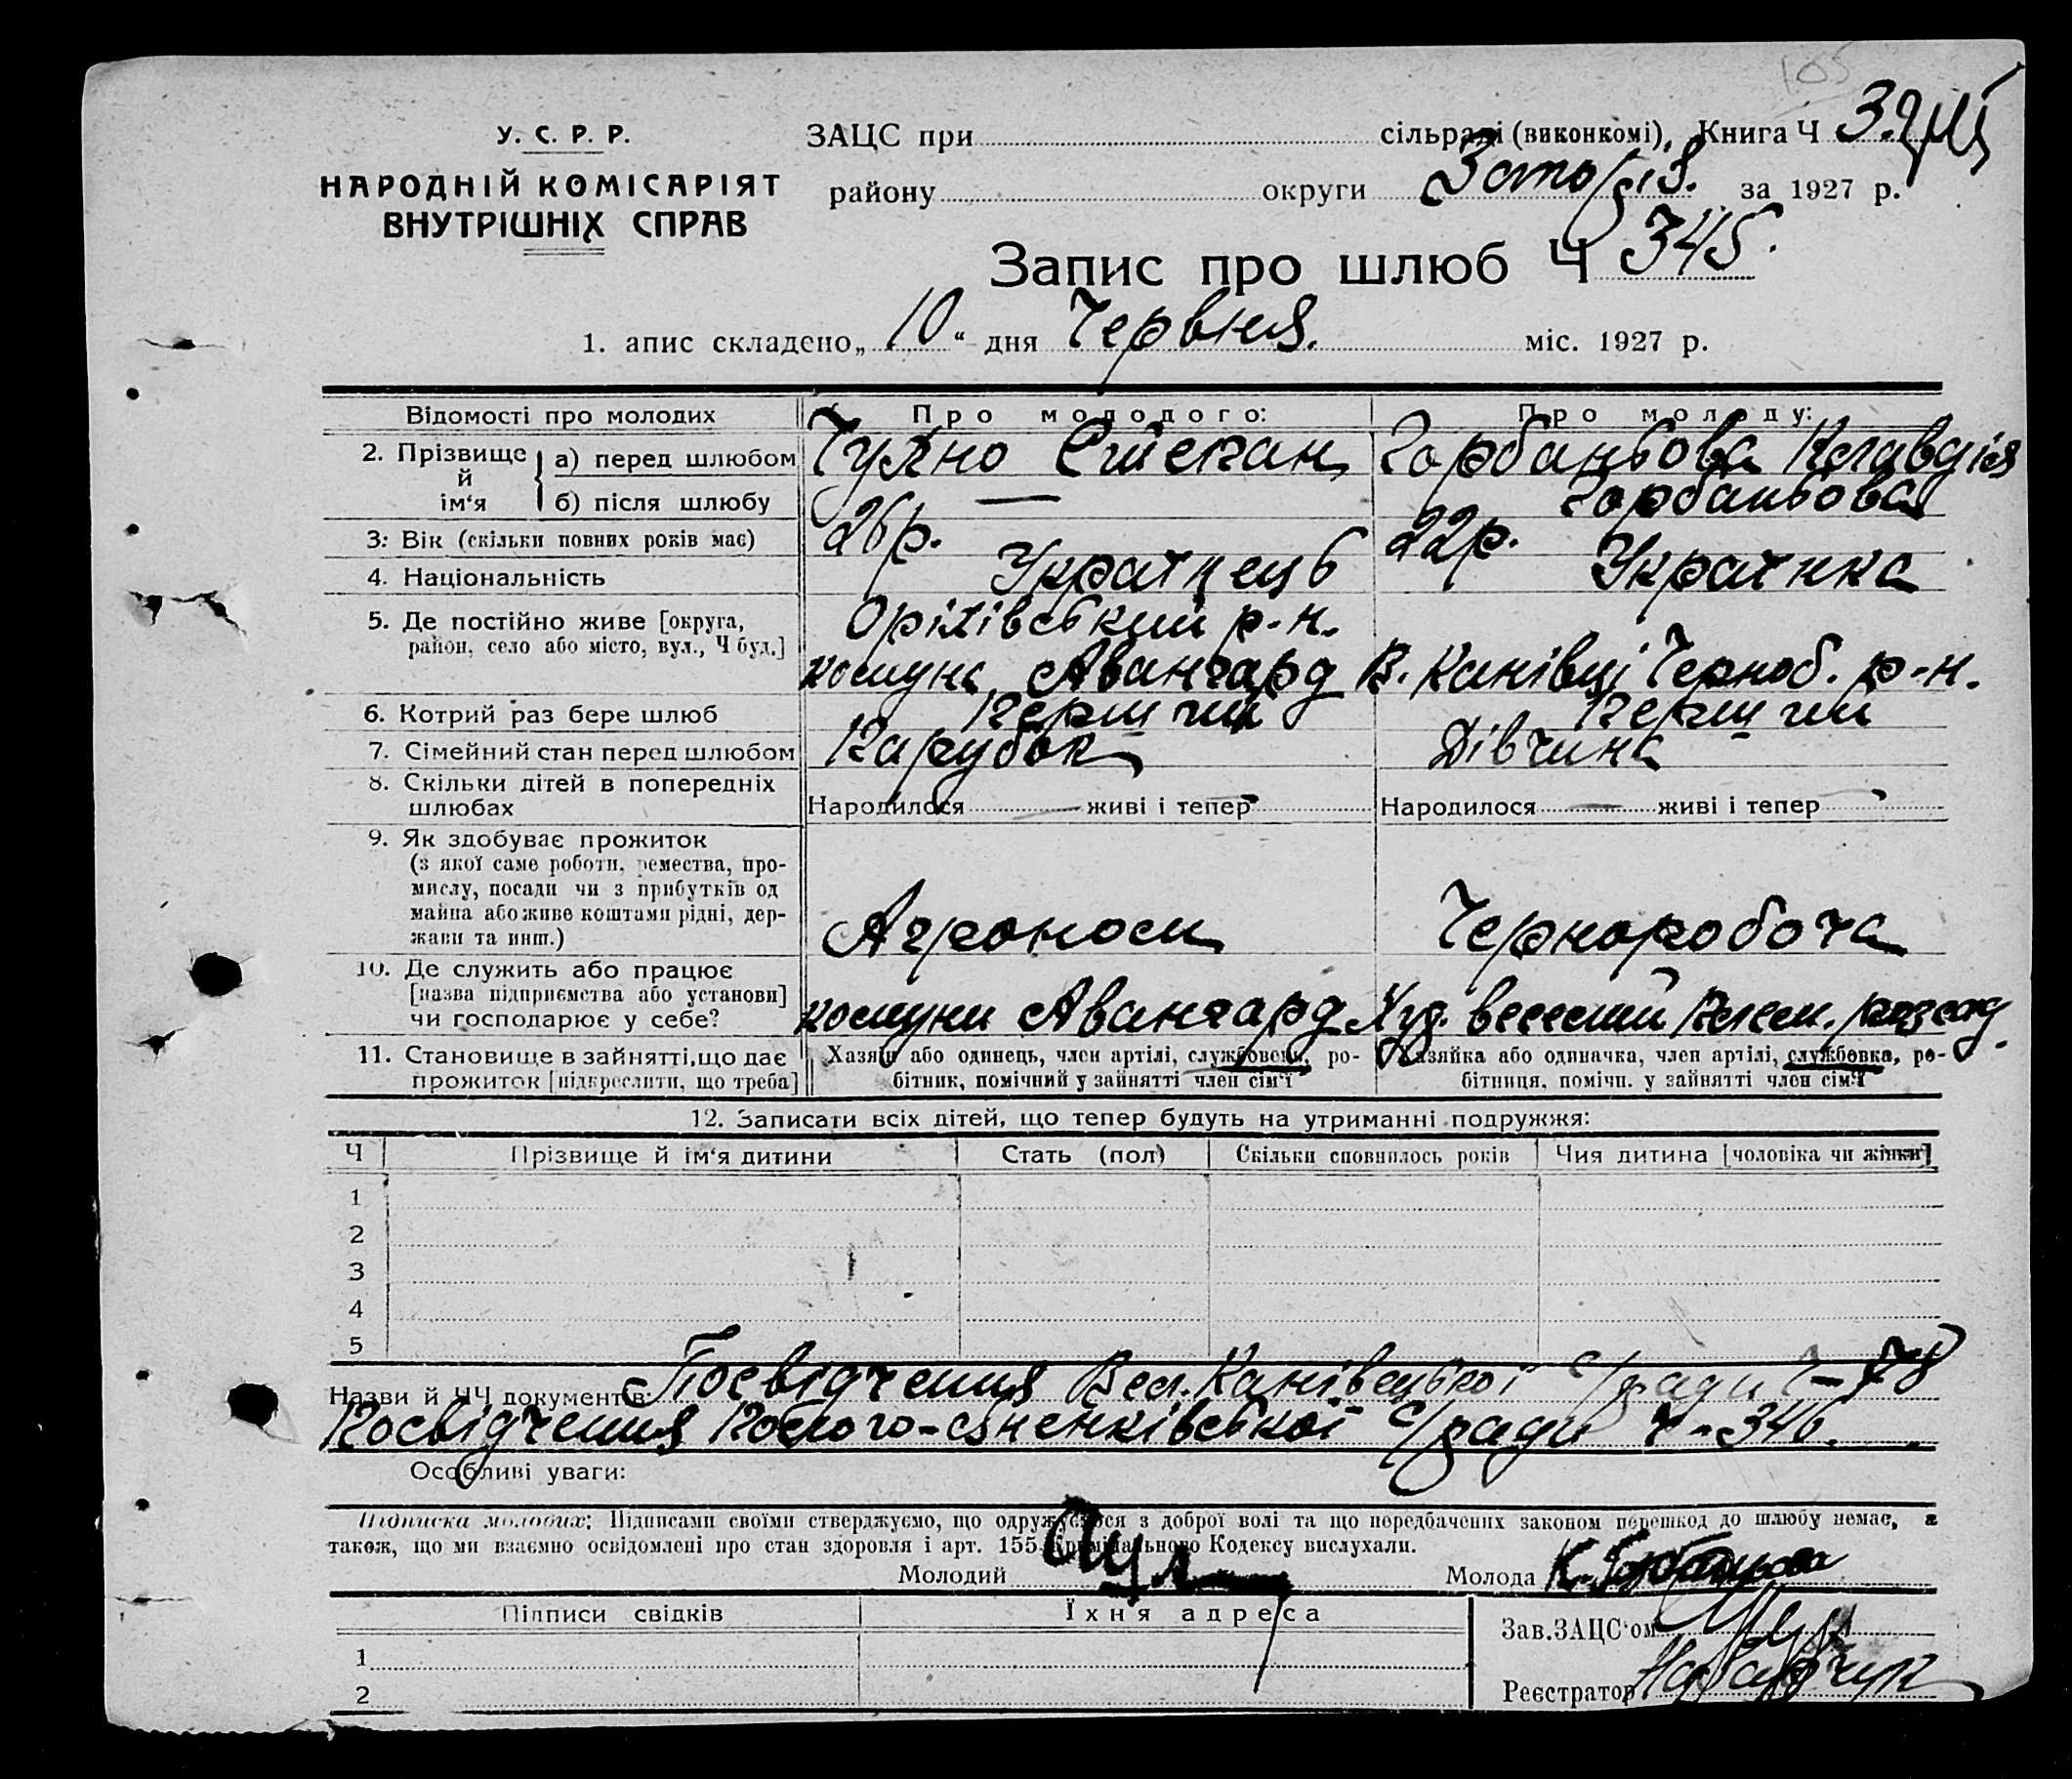 105
У. С. Р. Р.
НАРОДНІЙ КОМІСАРІЯТ
ВНУТРІШНІХ СПРАВ
ЗАЦС при сільраді (виконкомі), Книга Ч 3.
району округи за 1927 р.
Запис про шлюб Ч 345.
1. апис складено „ 10 “ дня Червня. міс. 1927 р.
Відомості про молодих Про молодого: Про молоду:
2. Прізвище й ім‘я
а) перед шлюбом Степан Горбаньова Клавдія
б) після шлюбу — Горбаньова
3. Вік (скільки повних років має) 26 р. 22 р.
4. Національність Українець Українка
5. Де постійно живе [округа, Оріхівський р-н.
район, село або місто, вул., Ч буд.] комуна Авангард В. Канівці Чорноб. р-н.
6. Котрий раз бере шлюб Перший Перший
7. Сімейний стан перед шлюбом Парубок Дівчина
8. Скільки дітей в попередніх
шлюбах Народилося — живі і тепер Народилося — живі і тепер
9. Як здобуває прожиток
(з якої саме роботи, ремества, про-
мислу, посади чи з прибутків од
майна або живе коштами рідні, дер-
жави та инш.) Агроном Чорноробоча
10. Де служить або працює
[назва підприємства або установи] комуни Авангард
чи господарює у себе?
11. Становище в зайнятті, що дає Хазяїн або одинець, член артілі, службовець, ро- Хазяйка або одиначка, член артілі, службовка, ро-
прожиток [підкреслити, що треба] бітник, помічний у зайнятті член сім‘ї бітниця, помічн. у зайнятті член сім‘ї
12. Записати всіх дітей, що тепер будуть на утриманні подружжя:
Ч Прізвище й ім‘я дитини Стать (пол) Скільки сповнилось років Чия дитина [чоловіка чи жінки]
1
2
3
4
5
Назви й ЧЧ документів: Посвідчення Вел. Канівецької с/ради Ч-
Посвідчення с/ради ч-346.
Особливі уваги:
Підписка молодих: Підписами своїми стверджуємо, що одружуємося з доброї волі та що передбачених законом перешкод до шлюбу немає, а
також, що ми взаємно освідомлені про стан здоровля і арт. 155 Кримінального Кодексу вислухали.
Молодий Молода К. Горбаньова
Підписи свідків Їхня адреса
Зав. ЗАЦС‘ом
1
2
Реєстратор